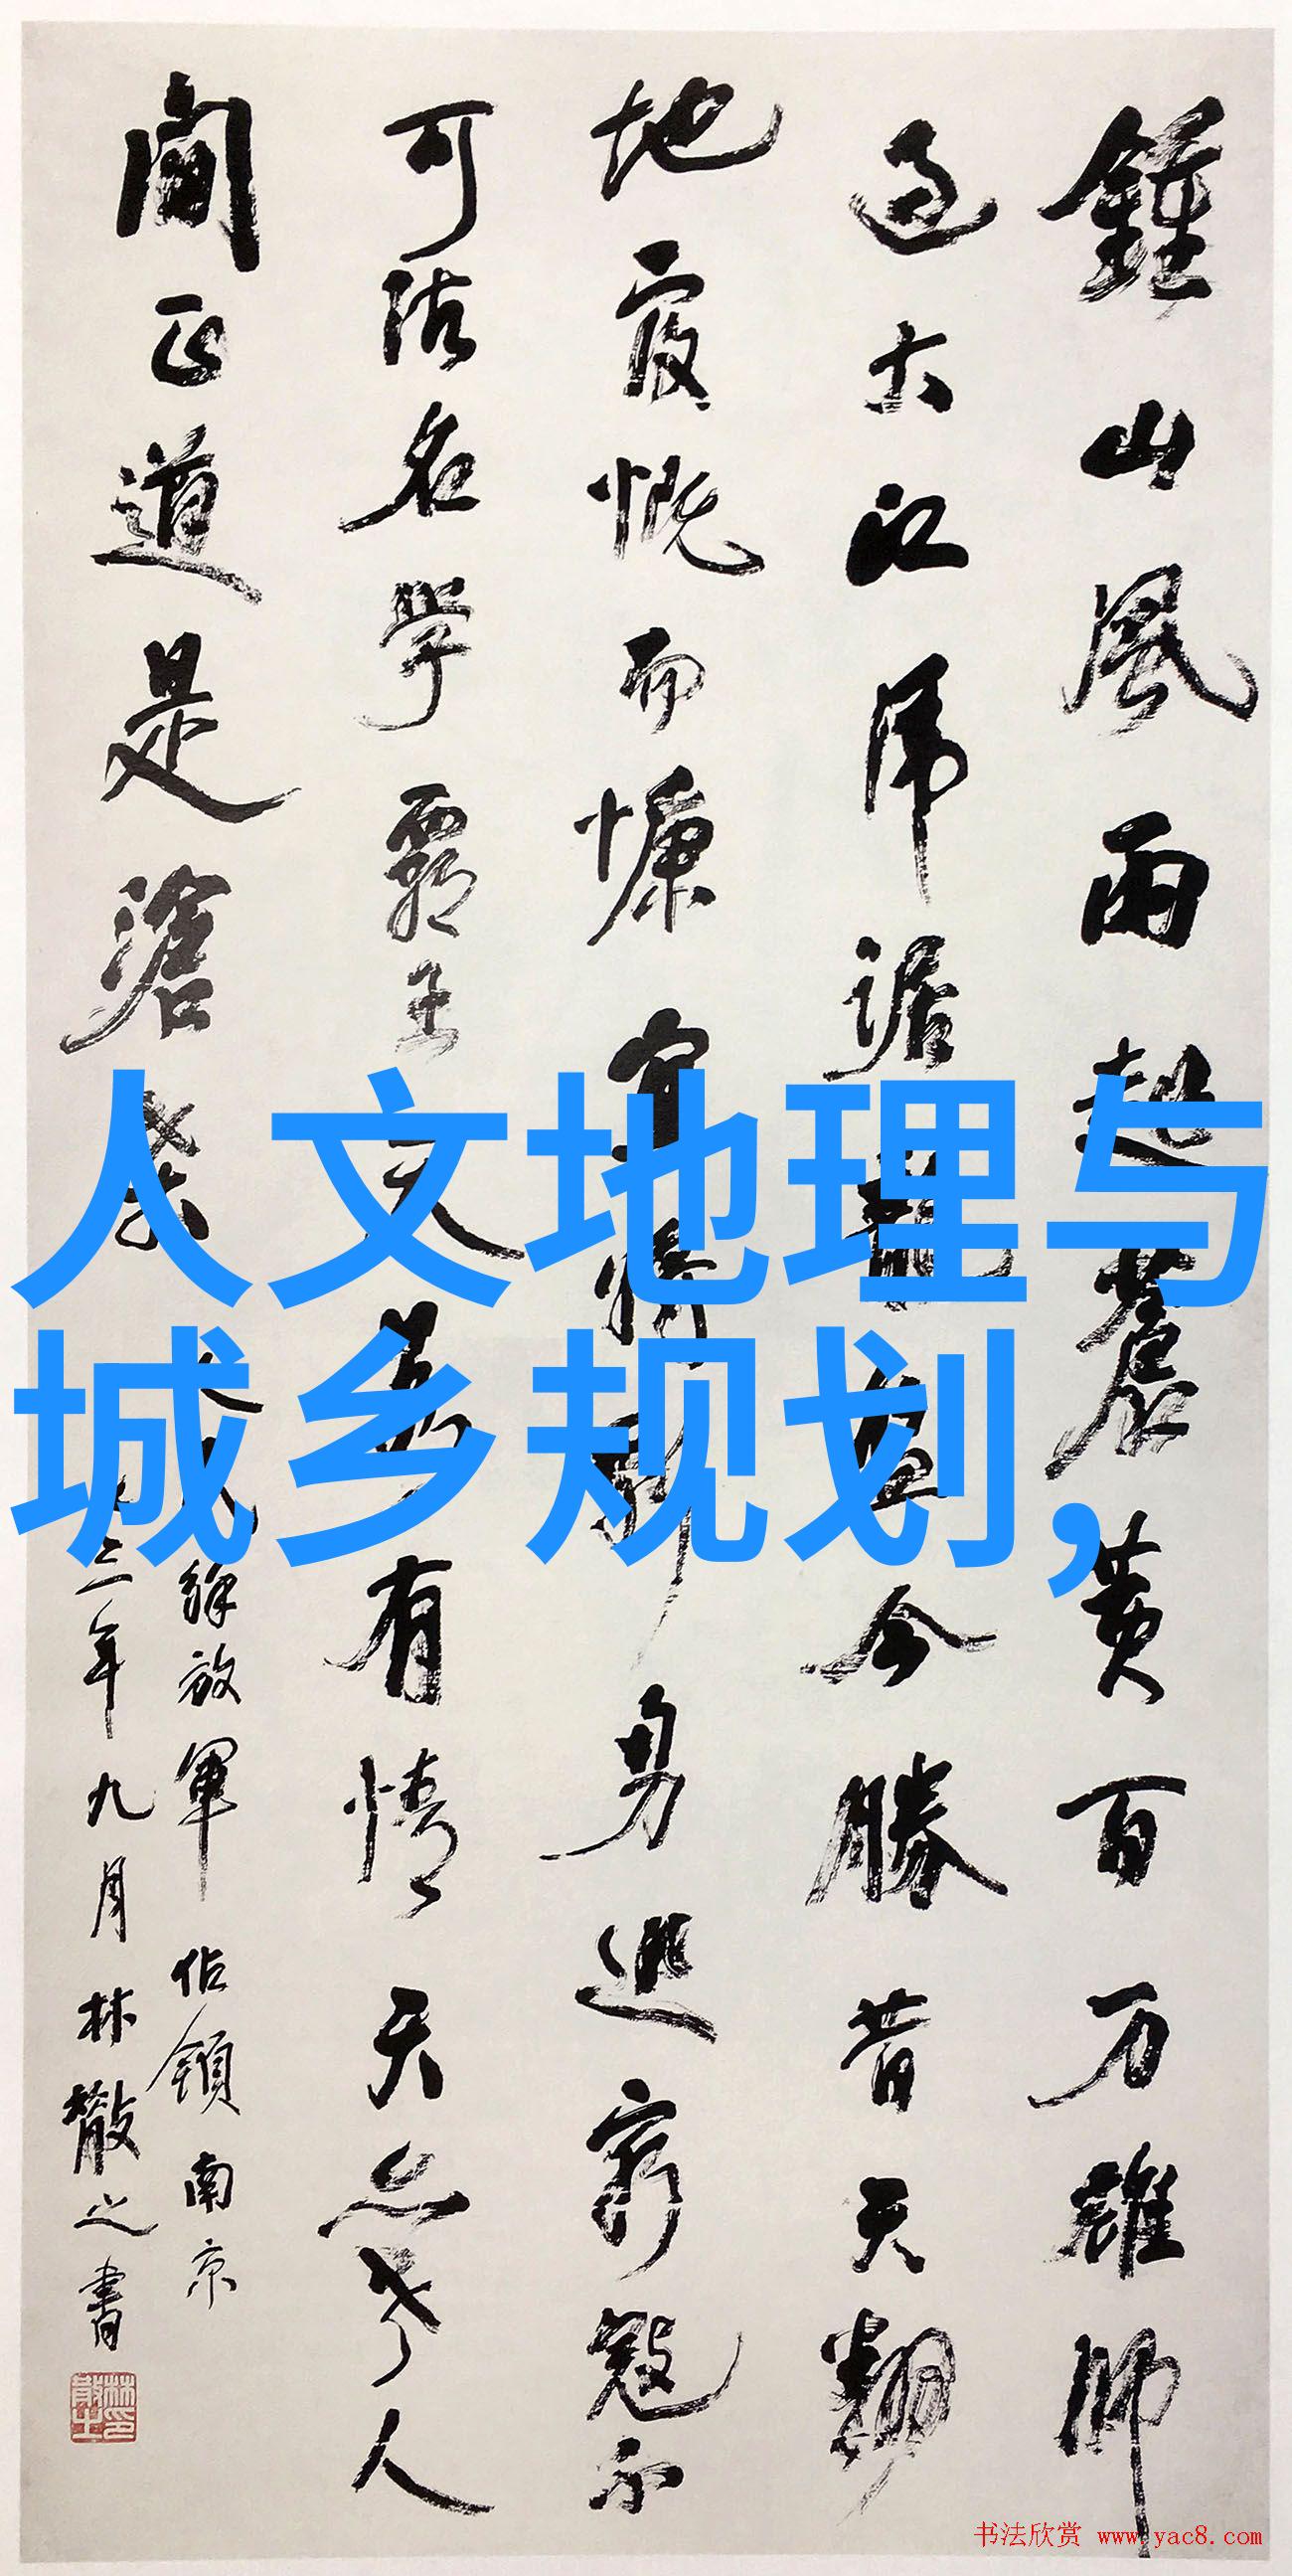 鍾山風雨起蒼黄百万雄師
过大江虎踞龍盘今勝昔天翻
地覆慨而慷宜将剩勇追窮寇不
可沽名學霸王天若有情天亦老人
間正道是滄桑
人民解放軍佔領南京
七三年九月林散之書
林散之印
人文地理与
城乡规划,
书法欣赏 www.yac8.com